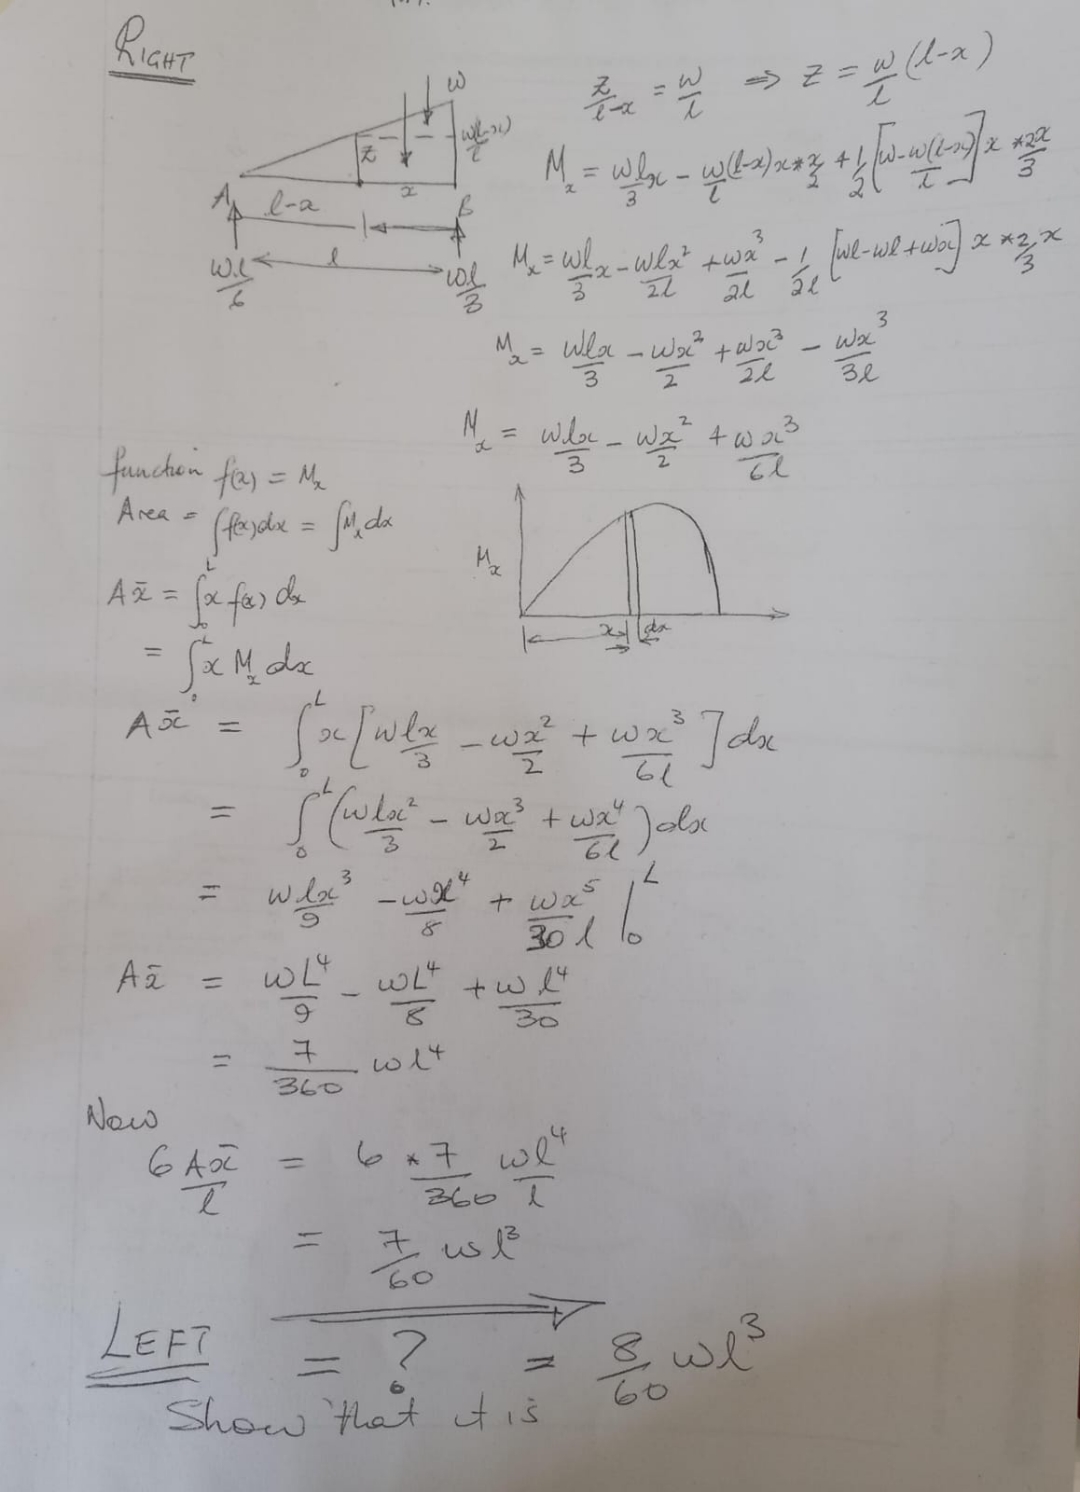 RIGHT
w
z
w(l-x)/l
x
A
l-x
B
l
wl/6
wl/3
z/(l-x) = w/l ⇒ z = w/l (l-x)
M_x = wlx/3 - w/l (l-x)x * x/2 + 1/2 [w - w(l-x)/l] x * 2x/3
M_x = wl/3 x - wlx²/2l + wx³/2l - 1/2l [wl-wl+wx] x * 2/3 x
M_x = wlx/3 - wx²/2 + wx³/2l - wx³/3l
M_x = wlx/3 - wx²/2 + wx³/6l
function f(x) = M_x
Area = ∫f(x)dx = ∫M_x dx
Ax̄ = ∫₀ᴸ x f(x) dx
= ∫₀ᴸ x M_x dx
M_x
x
dx
Ax̄ = ∫₀ᴸ x [wlx/3 - wx²/2 + wx³/6l] dx
= ∫₀ᴸ (wlx²/3 - wx³/2 + wx⁴/6l) dx
= wlx³/9 - wx⁴/8 + wx⁵/30l |₀ᴸ
Ax̄ = wL⁴/9 - wL⁴/8 + wl⁴/30
= 7/360 wl⁴
Now
6Ax̄/l = 6 * 7/360 wl⁴/l
= 7/60 wl³
LEFT = ? = 8/60 wl³
Show that it is